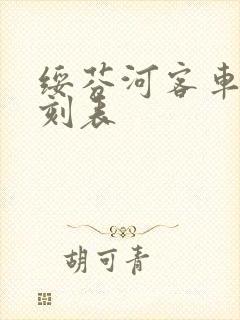 绥芬河客车
刻表
胡可青